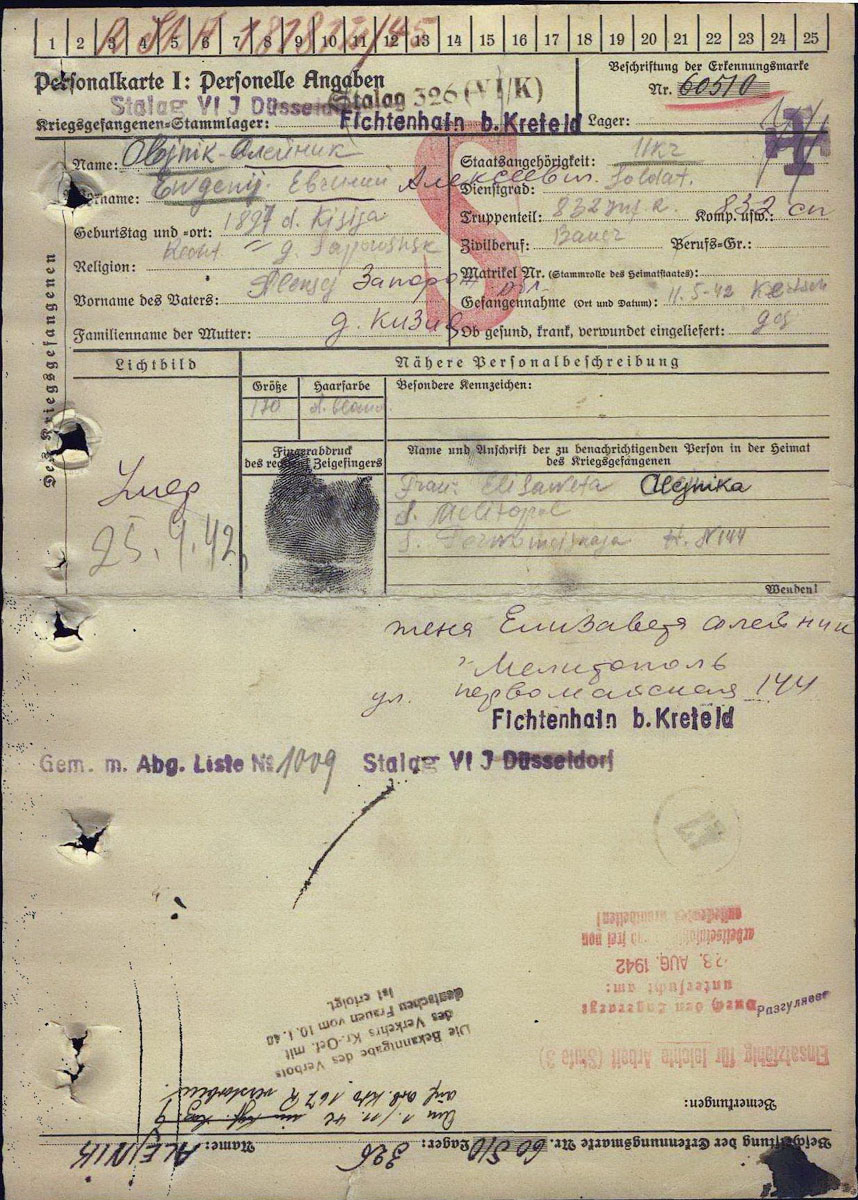 R St A 181812/45
1 2 3 4 5 6 7 8 9 10 11 12 13 14 15 16 17 18 19 20 21 22 23 24 25
Personalkarte I: Personelle Angaben
Beschriftung der Erkennungsmarke
Stalag VI J Düsseldorf Stalag 326 (VI/K)
Nr. 60510
Kriegsgefangenen-Stammlager: Fichtenhain b. Krefeld Lager:
Name: Olejnik-Алейник
Staatsangehörigkeit: Ukr
Vorname: Evgenij Евгений Алексеевич
Dienstgrad: Soldat.
Geburtstag und -ort: 1897 d. Kisija
Truppenteil: 832 Inf. R. Komp. usw.: 832 сп
Zivilberuf: Bauer Berufs-Gr.:
Religion:
Matrikel Nr. (Stammrolle des Heimatstaates):
Vorname des Vaters: Alexej Запорож обл.
Gefangennahme (Ort und Datum): 11.5-42 Kertsch
Familienname der Mutter: д. Кизия
Ob gesund, krank, verwundet eingeliefert: ges
S
Des Kriegsgefangenen
Lichtbild
Nähere Personalbeschreibung
Größe Haarfarbe Besondere Kennzeichen:
170 d. blond
Fingerabdruck
des rechten Zeigefingers
Name und Anschrift der zu benachrichtigenden Person in der Heimat
des Kriegsgefangenen
Frau: Elisaweta Olejnika
умер
S. Melitopol
25.9.42
H. N 144
Wenden!
жена Елизавета Алейник
г Мелитополь
ул. первомайская 144
Fichtenhain b. Krefeld
Gem. m. Abg. Liste № 1009 Stalag VI J Düsseldorf
arbeitseinsatz frei von
23. AUG. 1942
untersucht am:
Durch den Lagerarzt
Разгуляева
Einsatzfähig für leichte Arbeit (Stufe 3)
Die Bekanntgabe des Verbots
des Verkehrs Kr.-Gef. mit
deutschen Frauen vom 10.1.40
ist erfolgt.
Bemerkungen:
auf Arb. Kdo. 167 R verstorben.
Beschriftung der Erkennungsmarke Nr. 60510 Lager: 326 Name: ALEJNIK